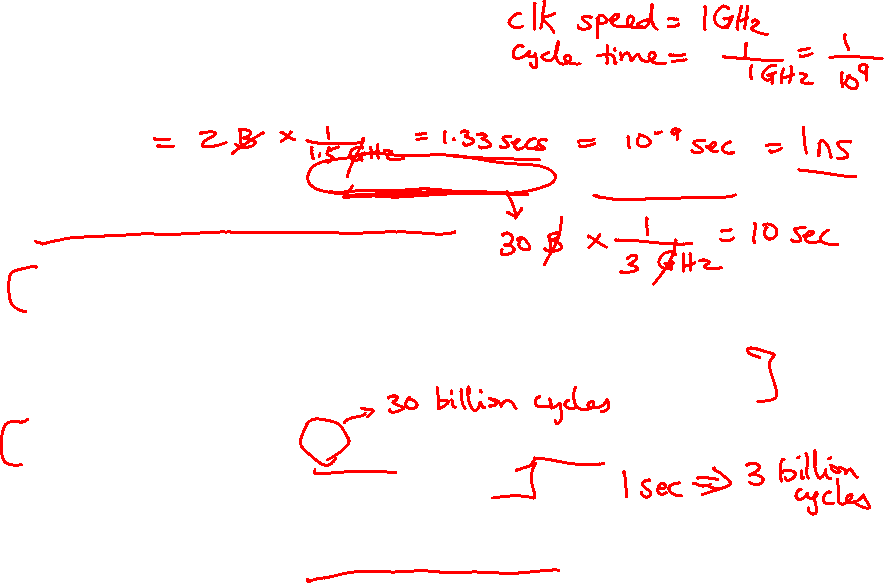 clk speed = 1GHz
cycle time = 1/1GHz = 1/10^9
= 2 B × 1/1.5 GHz = 1.33 secs = 10^-9 sec = 1ns
30 B × 1/3 GHz = 10 sec
→ 30 billion cycles
1 sec ⇒ 3 billion
cycles